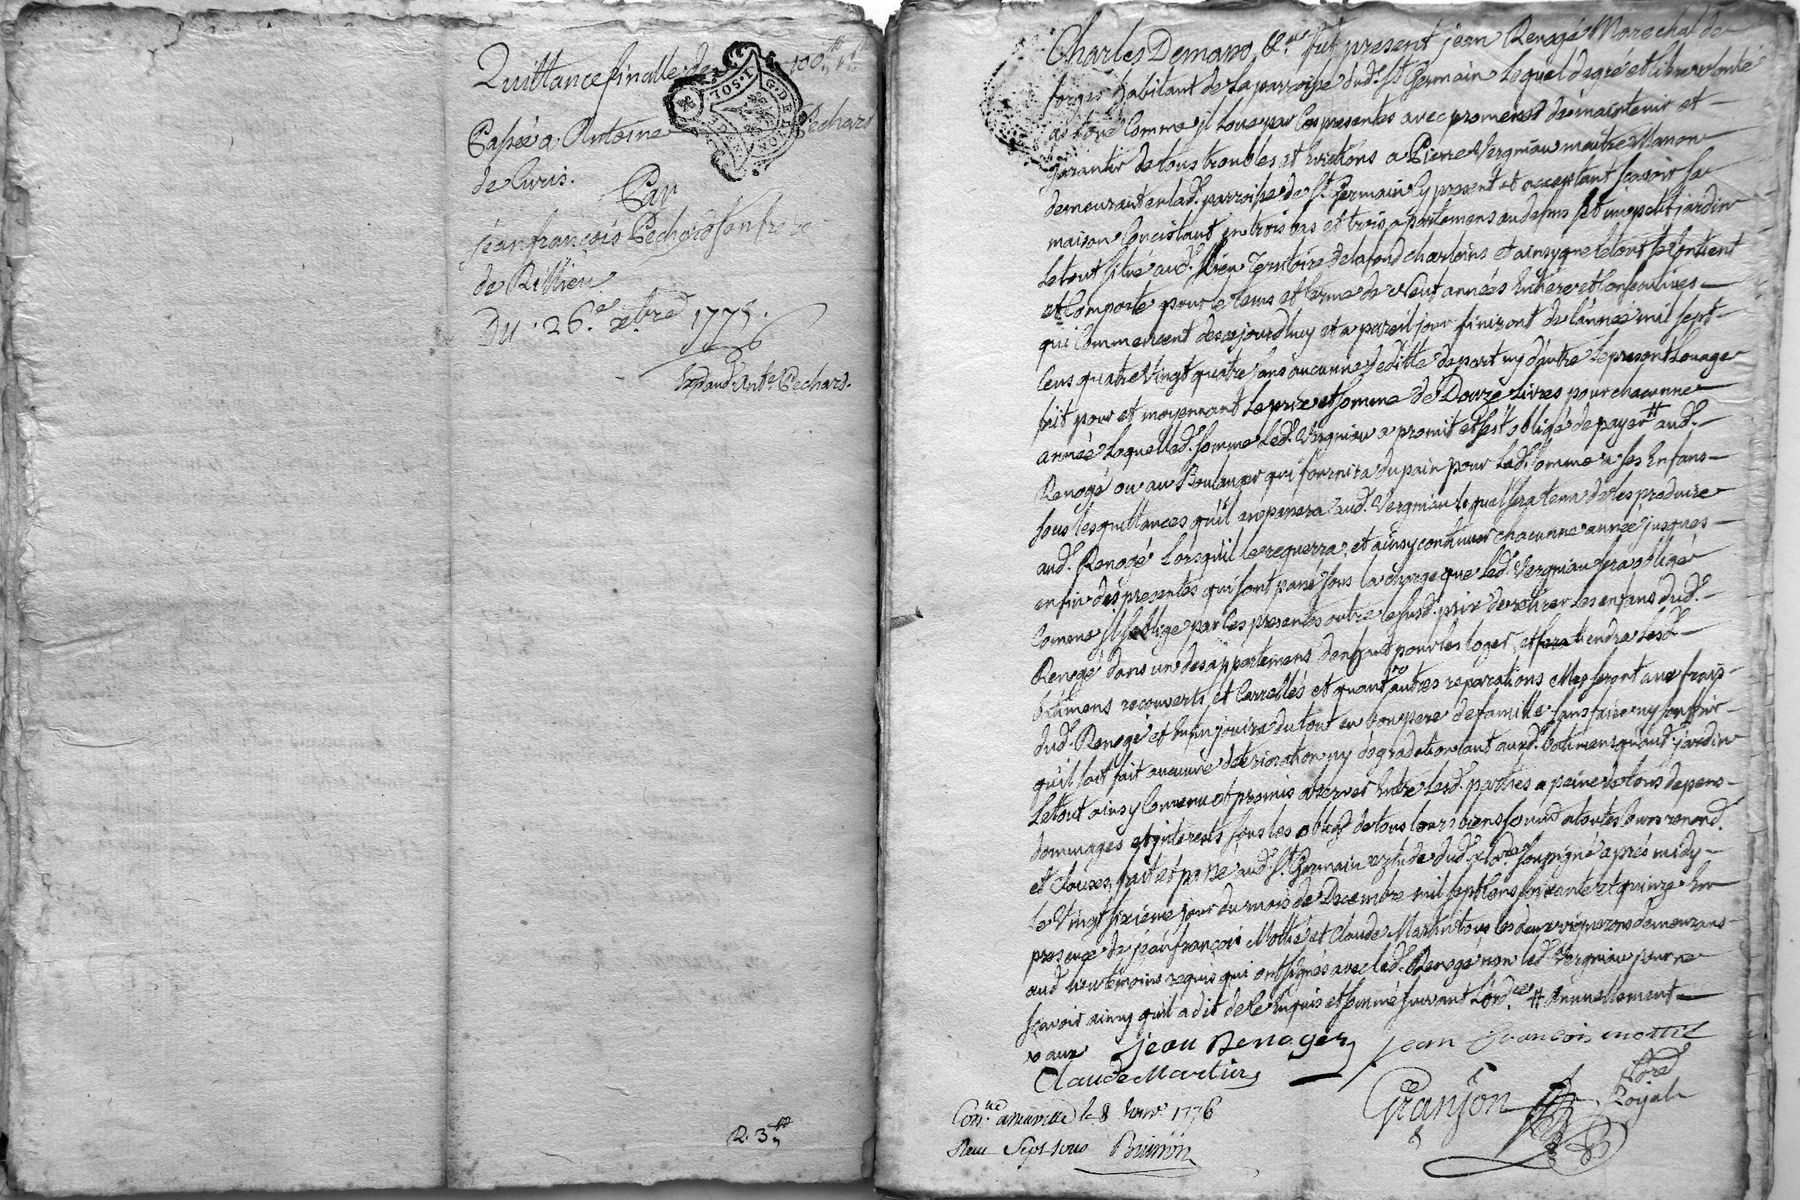 Quittance finalle de 100ᵗᵗ
Passée a Antoine Pechard
de Curis.
Par
jean françois Pechard son frere
de Rittieu
Du 26.e xbre 1775.
Exp.d aud. Ant.e Pechard.
R. 3ᵗᵗ
1. SOL.
G. DE LYON
Charles Demano, &.ra fut present jean Renogé Marechal de
forges habitant de La parroisse dud. S.t Germain Lequel de gré et libre volonté
a Loué Comme il Loue par Ces presentes avec promesses de maintenir et
garantir de tous troubles et Evictions a Pierre Vergniau maitre Manon
demeurant en lad. parroisse de S.t Germain Cy present et acceptant Scavoir Sa
maison Concistant en trois bas et trois apartemens au dessus et un petit jardin
Le tout Situé aud. Lieu Territoire de la fond charloins et ainsy que le tout se Contient
et Comporte pour le tems et terme de Neuf années Entiere et Consecutives
qui Commencent des cejourdhuy et a pareil jour finiront de l'année mil sept
Cens quatre Vingt quatre sans aucunne deditte de part ny d'autre Le present Louage
fait pour et moyennant Le prix et somme de Douze Livres pour chacunne
année Laquelle d. somme Led. Vergniau a promit et s'est obligé de payer # aud.
Renogé ou au Boulanger qui fournira du pain pour Lad. somme a ses Enfans
sous les quittances qu'il en passera aud. Vergniau Lequel sera tenu de les produire
aud. Renogé Lorsquil le requerra, et ainsy continuer chacunne année jusques
enfin des presentes qui sont passé sous la charge que Led. Vergniau sera obligé
Comme il s'oblige par les presentes outre le susd. prix de retirer Les enfans dud.
Renogé dans un des appartemens d'enhaut pour les loger, et tiendra Lesd.
bâtimens recouverts et Carrellés et quant autres reparations Elles seront aux frais
dud. Renogé et Enfin jouira du tout en bon pere de famille sans faire ny souffrir
qu'il soit fait aucunne deterioration ny degradation tant auxd. batimens qu'aud. jardin
Le tout ainsy Convenu et promis observer Entre Lesd. parties a peine de tous depens
dommages et interests sous les oblig.s de tous leurs biens soumd. a toutes Cours renond.
et Clauses, fait et passé aud. S.t Germain Etude dud. No.re Soussigné aprés midy
le Vingt sixieme jour du mois de Decembre mil sept Cens soixante et quinze En
presence de jean françois Mottié et Claude Martin tous les deux vignerons demeurans
aud. lieu temoins requis qui ont signés avec led. Renogé non led. Vergniau pour ne
scavoir ainsy qu'il a dit de ce Enquis et sommé suivant L'ord.ce # Annuellement
v aux jean Renoger jean François mottié
Claude Martin
Granjon No.re Royal
Con.lle a Neuville le 8 Janv. 1776
Reçu Sept sous Buirron